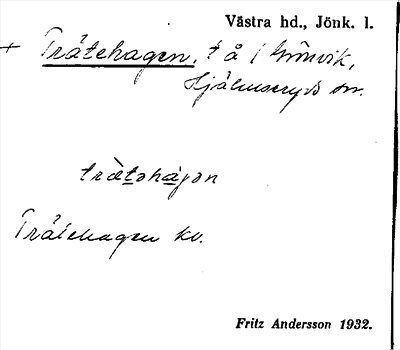 Västra hd., Jönk. l.
+ Trätehagen, t å / Grönvik,
Hjälmseryds sn.
trä̀təhàgən
Trätehagen kv.
Fritz Andersson 1932.